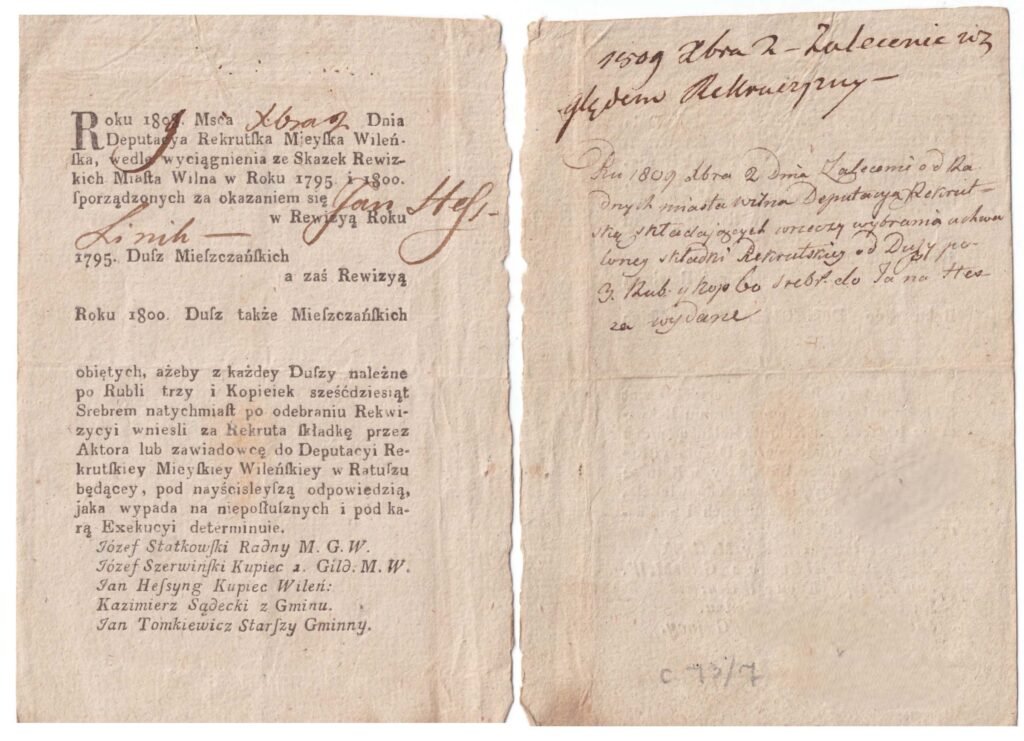 Roku 1809. Msca Xbra 2 Dnia
Deputacya Rekrutſka Mieyſka Wileń-
ſka, wedle wyciągnienia ze Skazek Rewiz-
kich Miaſta Wilna w Roku 1795. i 1800.
ſporządzonych za okazaniem się Jan Heſs-
w Rewizyą Roku
1795. Duſz Mieſzczańſkich
a zaś Rewizyą
Roku 1800. Duſz także Mieſzczańſkich
obiętych, ażeby z każdey Duſzy należne
po Rubli trzy i Kopieiek sześćdzieſiąt
Srebrem natychmiaſt po odebraniu Rekwi-
zycyi wnieſli za Rekruta ſkładkę przez
Aktora lub zawiadowcę do Deputacyi Re-
krutſkiey Mieyſkiey Wileńſkiey w Ratuſzu
będącey, pod nayściſleyſzą odpowiedzią,
jaka wypada na niepoſłuſznych i pod ka-
rą Exekucyi determinuie.
Józef Statkowſki Radny M. G. W.
Józef Szerwińſki Kupiec 2. Gild. M. W.
Jan Heſsyng Kupiec Wileń:
Kazimierz Sądecki z Gminu.
Jan Tomkiewicz Starſzy Gminny.
1809 Xbra 2 – Zalecenie wz
ględem Rekrucizny –
Rku 1809 Xbra 2 Dnia Zalecenie od Ra
dnych miasta wilna Deputacją Rekrut-
skę składających wrzeczy wybrania uchwa
loney składki Rekrutskiey od Duszy po
3. Rub. y kop 60 srebr. do Jana Hes
za wydane
C 73/7